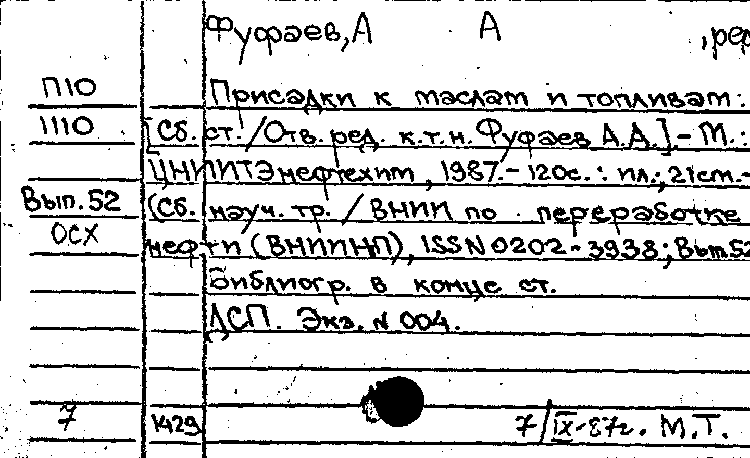 Фуфаев, А А , ред
П10 Присадки к маслам и топливам:
1110 [Сб. ст. / Отв. ред. к.т.н. Фуфаев А.А.] - М.:
ЦНИИТЭнефтехим, 1987. - 120с.: ил.; 21см. -
Вып. 52 (Сб. науч. тр. / ВНИИ по переработке
ОСХ нефти (ВНИИНП), ISSN 0202-3938; Вып. 52
Библиогр. в конце ст.
ДСП. Экз. N 004.
7 1429 7/IX-87г. М.Т.